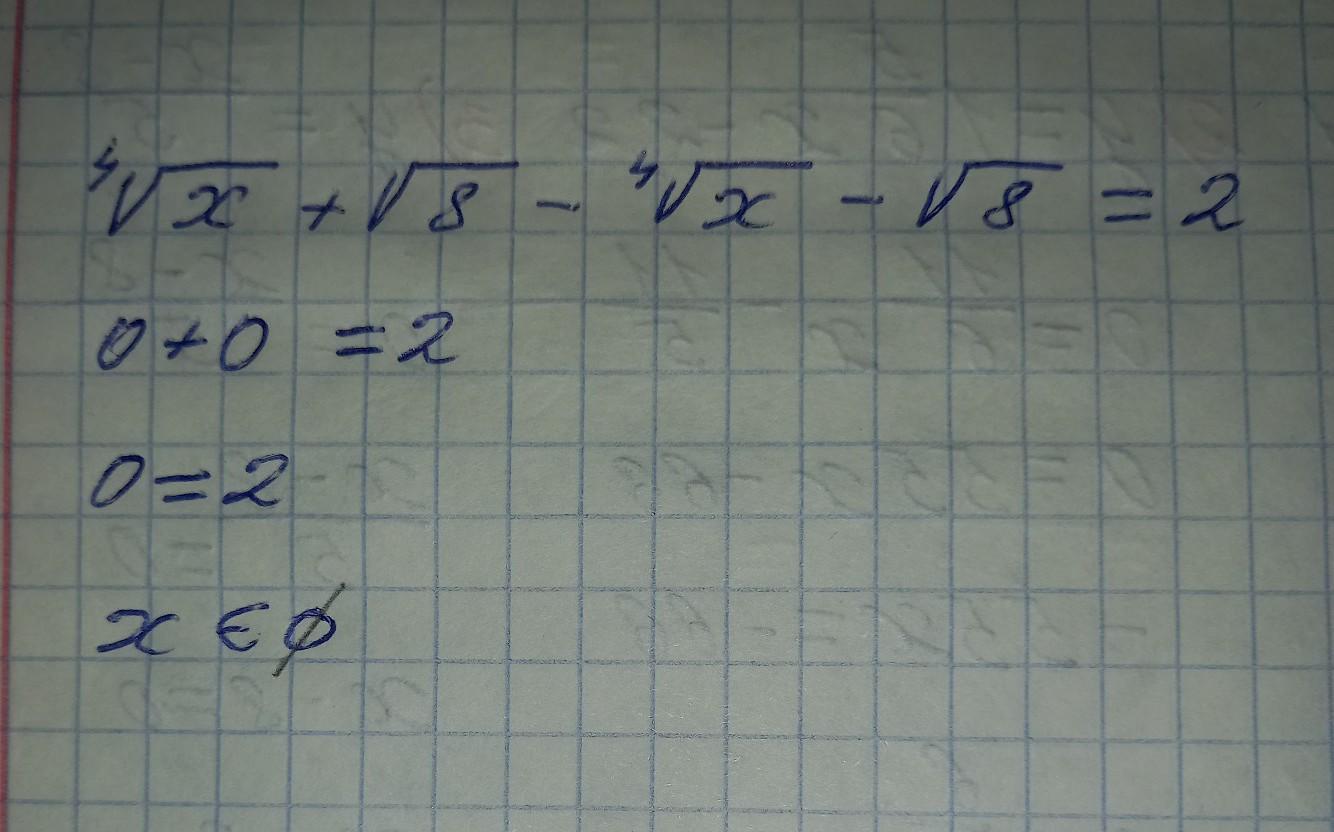 ⁴√x + √8 - ⁴√x - √8 = 2
0+0 = 2
0=2
x ∈ ∅